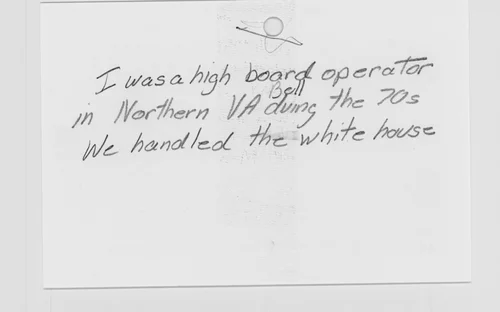 I was a high board operator
Bell
in Northern VA duing the 70s
We handled the white house